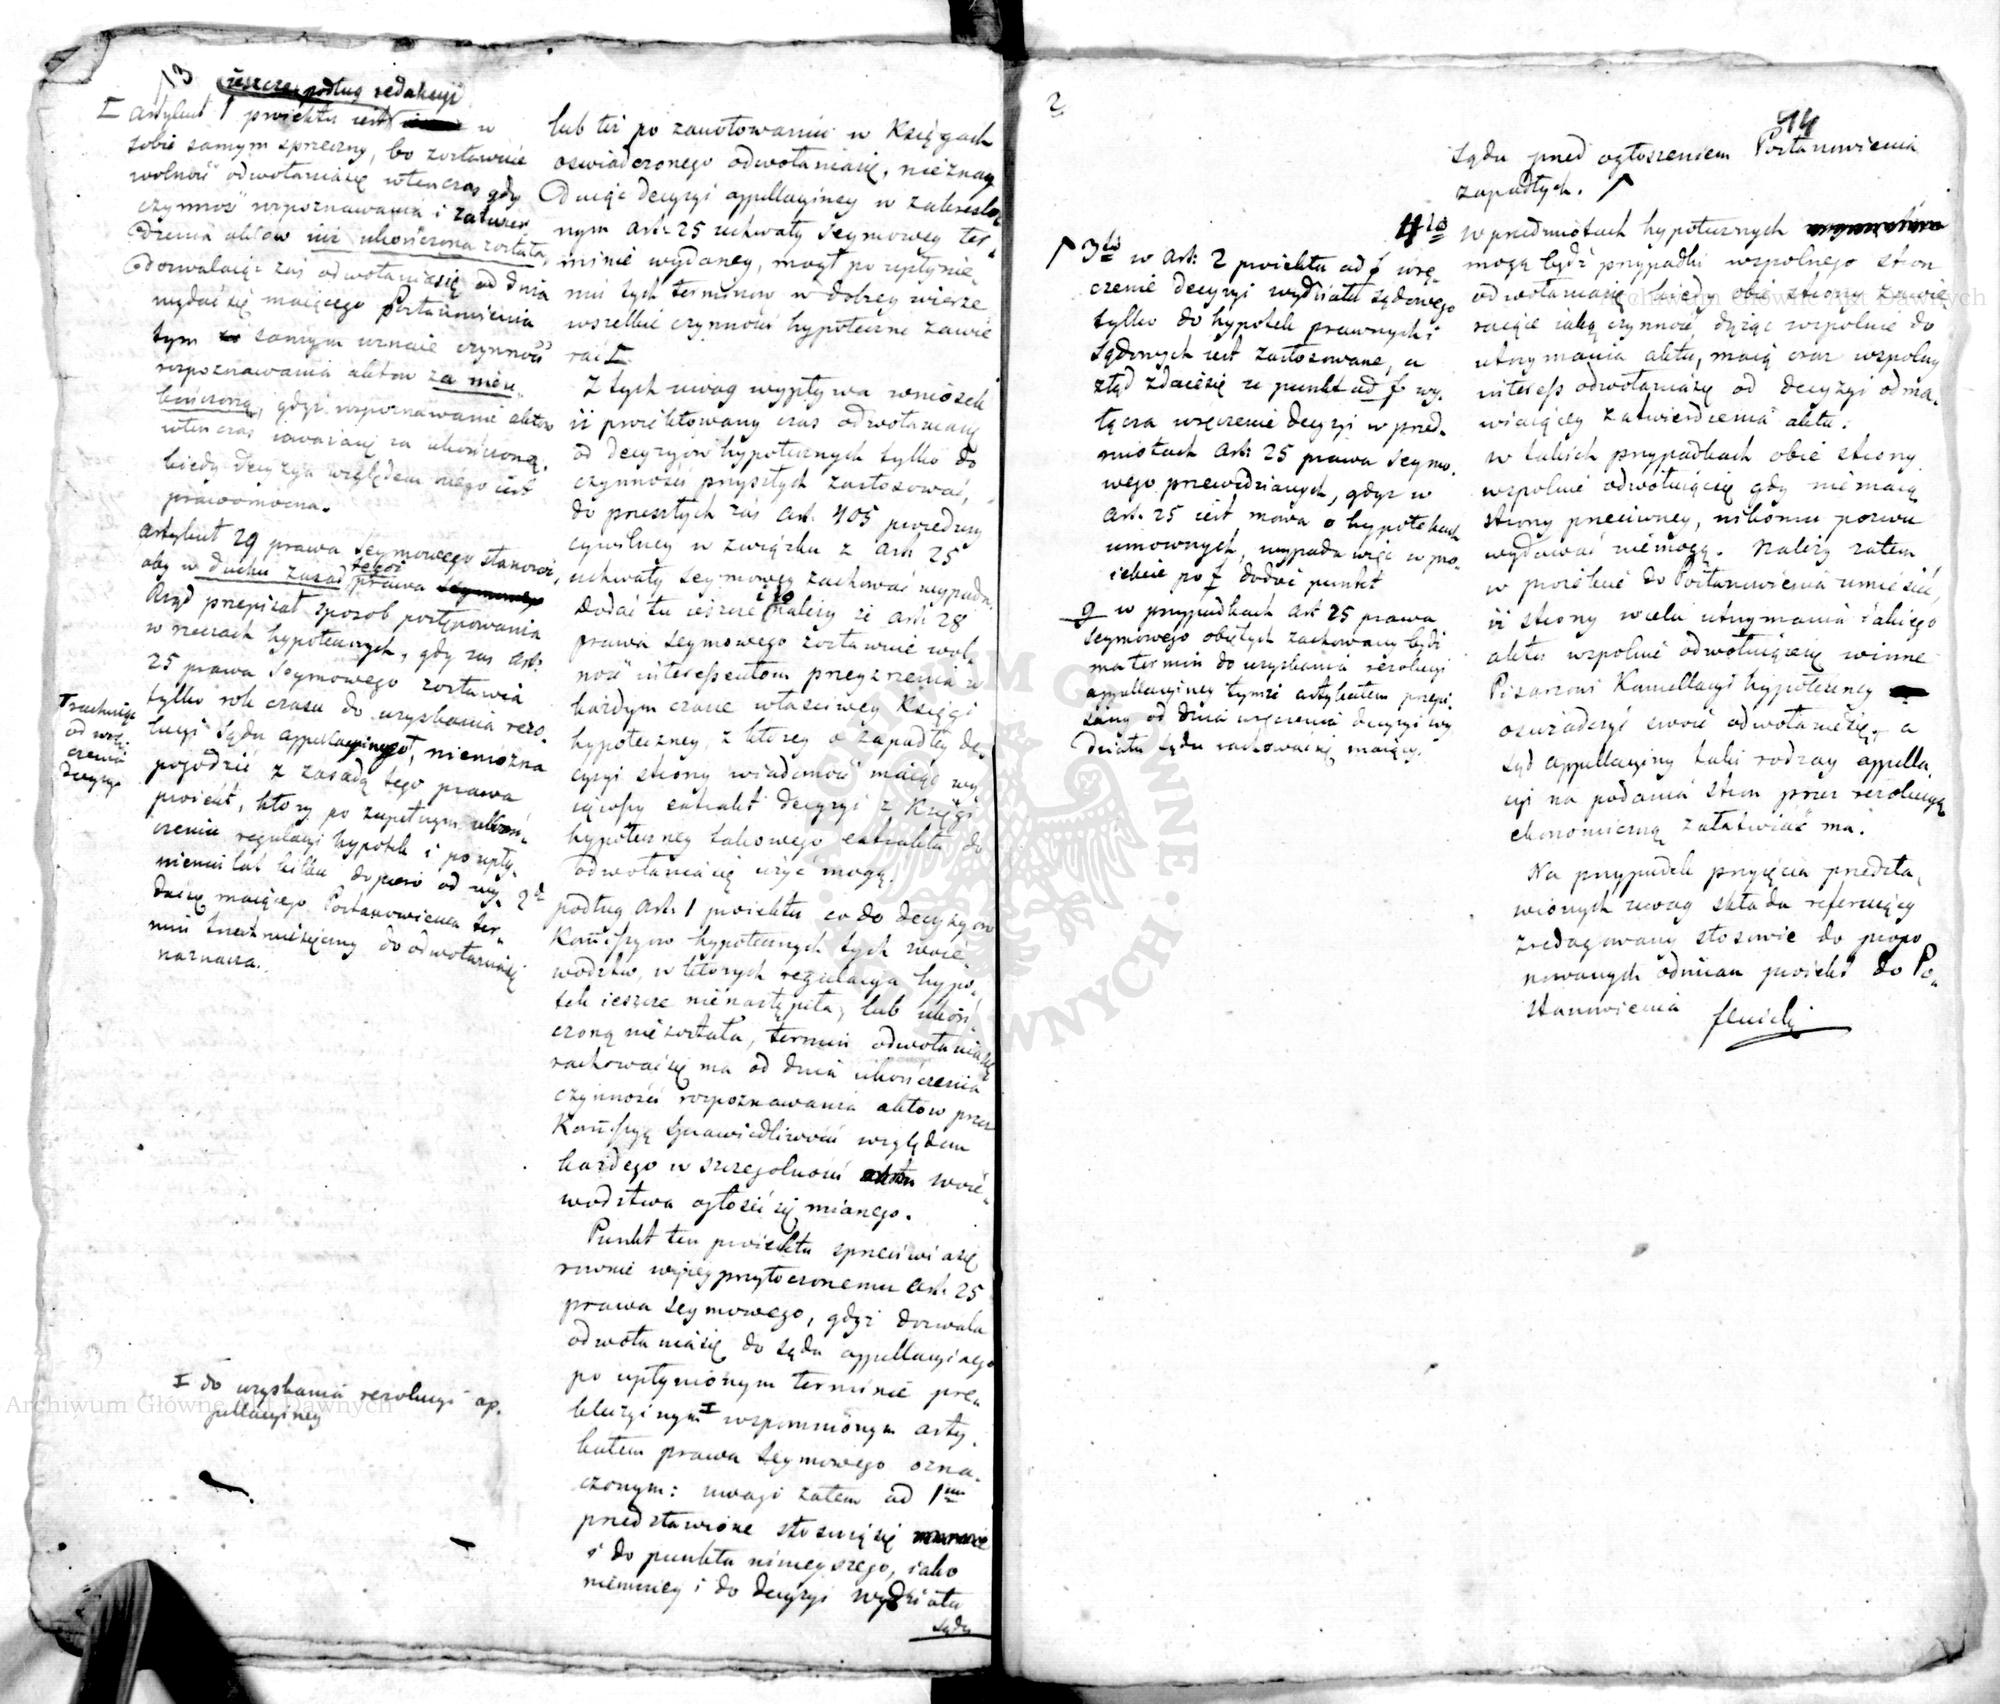 13
ieszcze podług redakcyi
Artykuł 1 proiektu iest w
sobie samym sprzeczny, bo zostawuie
wolność odwołaniasię wtenczas gdy
czynność rozpoznawania i zatwier
dzenia aktów iuż ukończona została,
dozwalaiąc zaś odwołaniasię od dnia
wydać się maiącego Postanowienia
tym samym uznaie czynność
rozpoznawania aktów za nieu
kończoną, gdyż rozpoznawanie aktów
wtenczas uważane za ukończone,
kiedy decyzya względem niego iest
prawomocna.
Artykuł 29 prawa Seymowego stanowi,
aby w duchu zasad tegoż prawa
Rząd przepisał sposób postępowania
w rzeczach hypotecznych, gdy zaś Art:
25 prawa Seymowego zostawia
tylko rok czasu do uzyskania rezo-
lucyi Sądu appellacyinego, niemożna
pogodzić z zasadą tego prawa
proiekt, który po zupełnym ukoń-
czeniu regulacyi hypotek i po upły-
nieniu lat kilku dopiero od wy-
dać się maiącego Postanowienia ter-
min trzechmiesięczny do odwołaniasię
naznacza.
Trzechmiesię
od wrę
czenia
decyzyi
I do uzyskania rezolucyi ap-
pellacyiney
lub też po zanotowaniu w Księgach
oświadczonego odwołaniasię, nieznay
duiąc decyzyi appellacyiney w zakreślo
nym Art: 25 uchwały Seymowey ter-
minie wydaney, mógł po upłynie
niu tych terminów w dobrey wierze
wszelkie czynności hypoteczne zawie
rać
Z tych uwag wypływa wniosek
iż proiektowany czas odwołaniasię
od decyzyiów hypotecznych tylko do
czynności przyszłych zastosować,
do przeszłych zaś Art. 405 procedury
cywilney w związku z Art 25
uchwały Seymowey zachować wypada.
Dodać tu ieszcze i to należy że Art: 28
prawa Seymowego zostawuie wol-
ność interessentom przeyrzenia w
każdym czasie właściwey Księgi
hypoteczney, z którey o zapadłey de
cyzyi strony wiadomość maiąc wy
iąwszy extrakt decyzyi z Księgi
hypoteczney takowego extraktu do
odwołaniasię użyć mogą.
2do
podług Art: 1 proiektu co do decyzyów
Kommissyów hypotecznych tych woie-
wództw, w których regulacya hypo-
tek ieszcze nienastąpiła, lub ukoń
czoną niezostała, termin odwołaniasię
rachowaćsię ma od dnia ukończenia
czynności rozpoznawania aktów przez
Kommissyą Sprawiedliwości względem
każdego w szczególności woie-
wództwa ogłosić się mianego.
Punkt ten proiektu sprzeciwiasię
równie wyżey przytoczonemu Art: 25
prawa Seymowego, gdyż dozwala
odwołaniasię do Sądu appellacyinego
po upłynionym terminie pre-
kluzyinym I wspomnionym arty-
kułem prawa Seymowego ozna-
czonym: uwagi zatem ad 1um
przedstawione stosuiąsię
i do punktu ninieyszego, iako
niemniey i do decyzyi wydziału
Sądu
2
14
Sądu przed ogłoszeniem Postanowienia
zapadłych.
3tio w Art: 2 proiektu ad f wrę-
czenie decyzyi wydziału Sądowego
tylko do hypotek prawnych i
Sądowych iest zastosowane, a
ztąd zdaiesię że punkt ad f wy-
łącza wręczenie decyzyi w przed-
miotach Art: 25 prawa Seymo-
wego przewidzianych, gdyż w
Art. 25 iest mowa o hypotekach
umownych, wypada więc w pro-
iekcie po f dodać punkt
g w przypadkach Art 25 prawa
Seymowego obiętych zachowany być
ma termin do uzyskania rezolucyi
appellacyiney tymże artykułem przepi
sany od dnia wręczenia decyzyi wy
działu Sądu rachowaćsię maiący.
4to w przedmiotach hypotecznych
mogą bydź przypadki wspólnego stron
odwołaniasię kiedy obie strony zawie
raiące iaką czynność, dążąc wspólnie do
utrzymania aktu, maią oraz wspólny
interess odwołaniasię od decyzyi odma-
wiaiącey zatwierdzenia aktu.
w takich przypadkach obie strony
wspólnie odwołuiącesię gdy niemaią
strony przeciwney, nikomu pozwu
wydawać niemogą. Należy zatem
w proiekcie do Postanowienia umieścić,
iż strony w celu utrzymania takiego
aktu wspólnie odwołuiącesię winne
Pisarzowi Kancellaryi hypoteczney
oświadczyć swoie odwołaniesię, a
Sąd appellacyiny taki rodzay appella-
cyi na podania stron przez rezolucyą
ekonomiczną załatwiać ma.
Na przypadek przyięcia przedsta-
wionych uwag składa referuiący
zredagowany stosownie do propo
nowanych odmian proiekt do Po-
stanowienia
Archiwum Główne Akt Dawnych
Archiwum Główne Akt Dawnych
ARCHIWUM GŁÓWNE AKT DAWNYCH